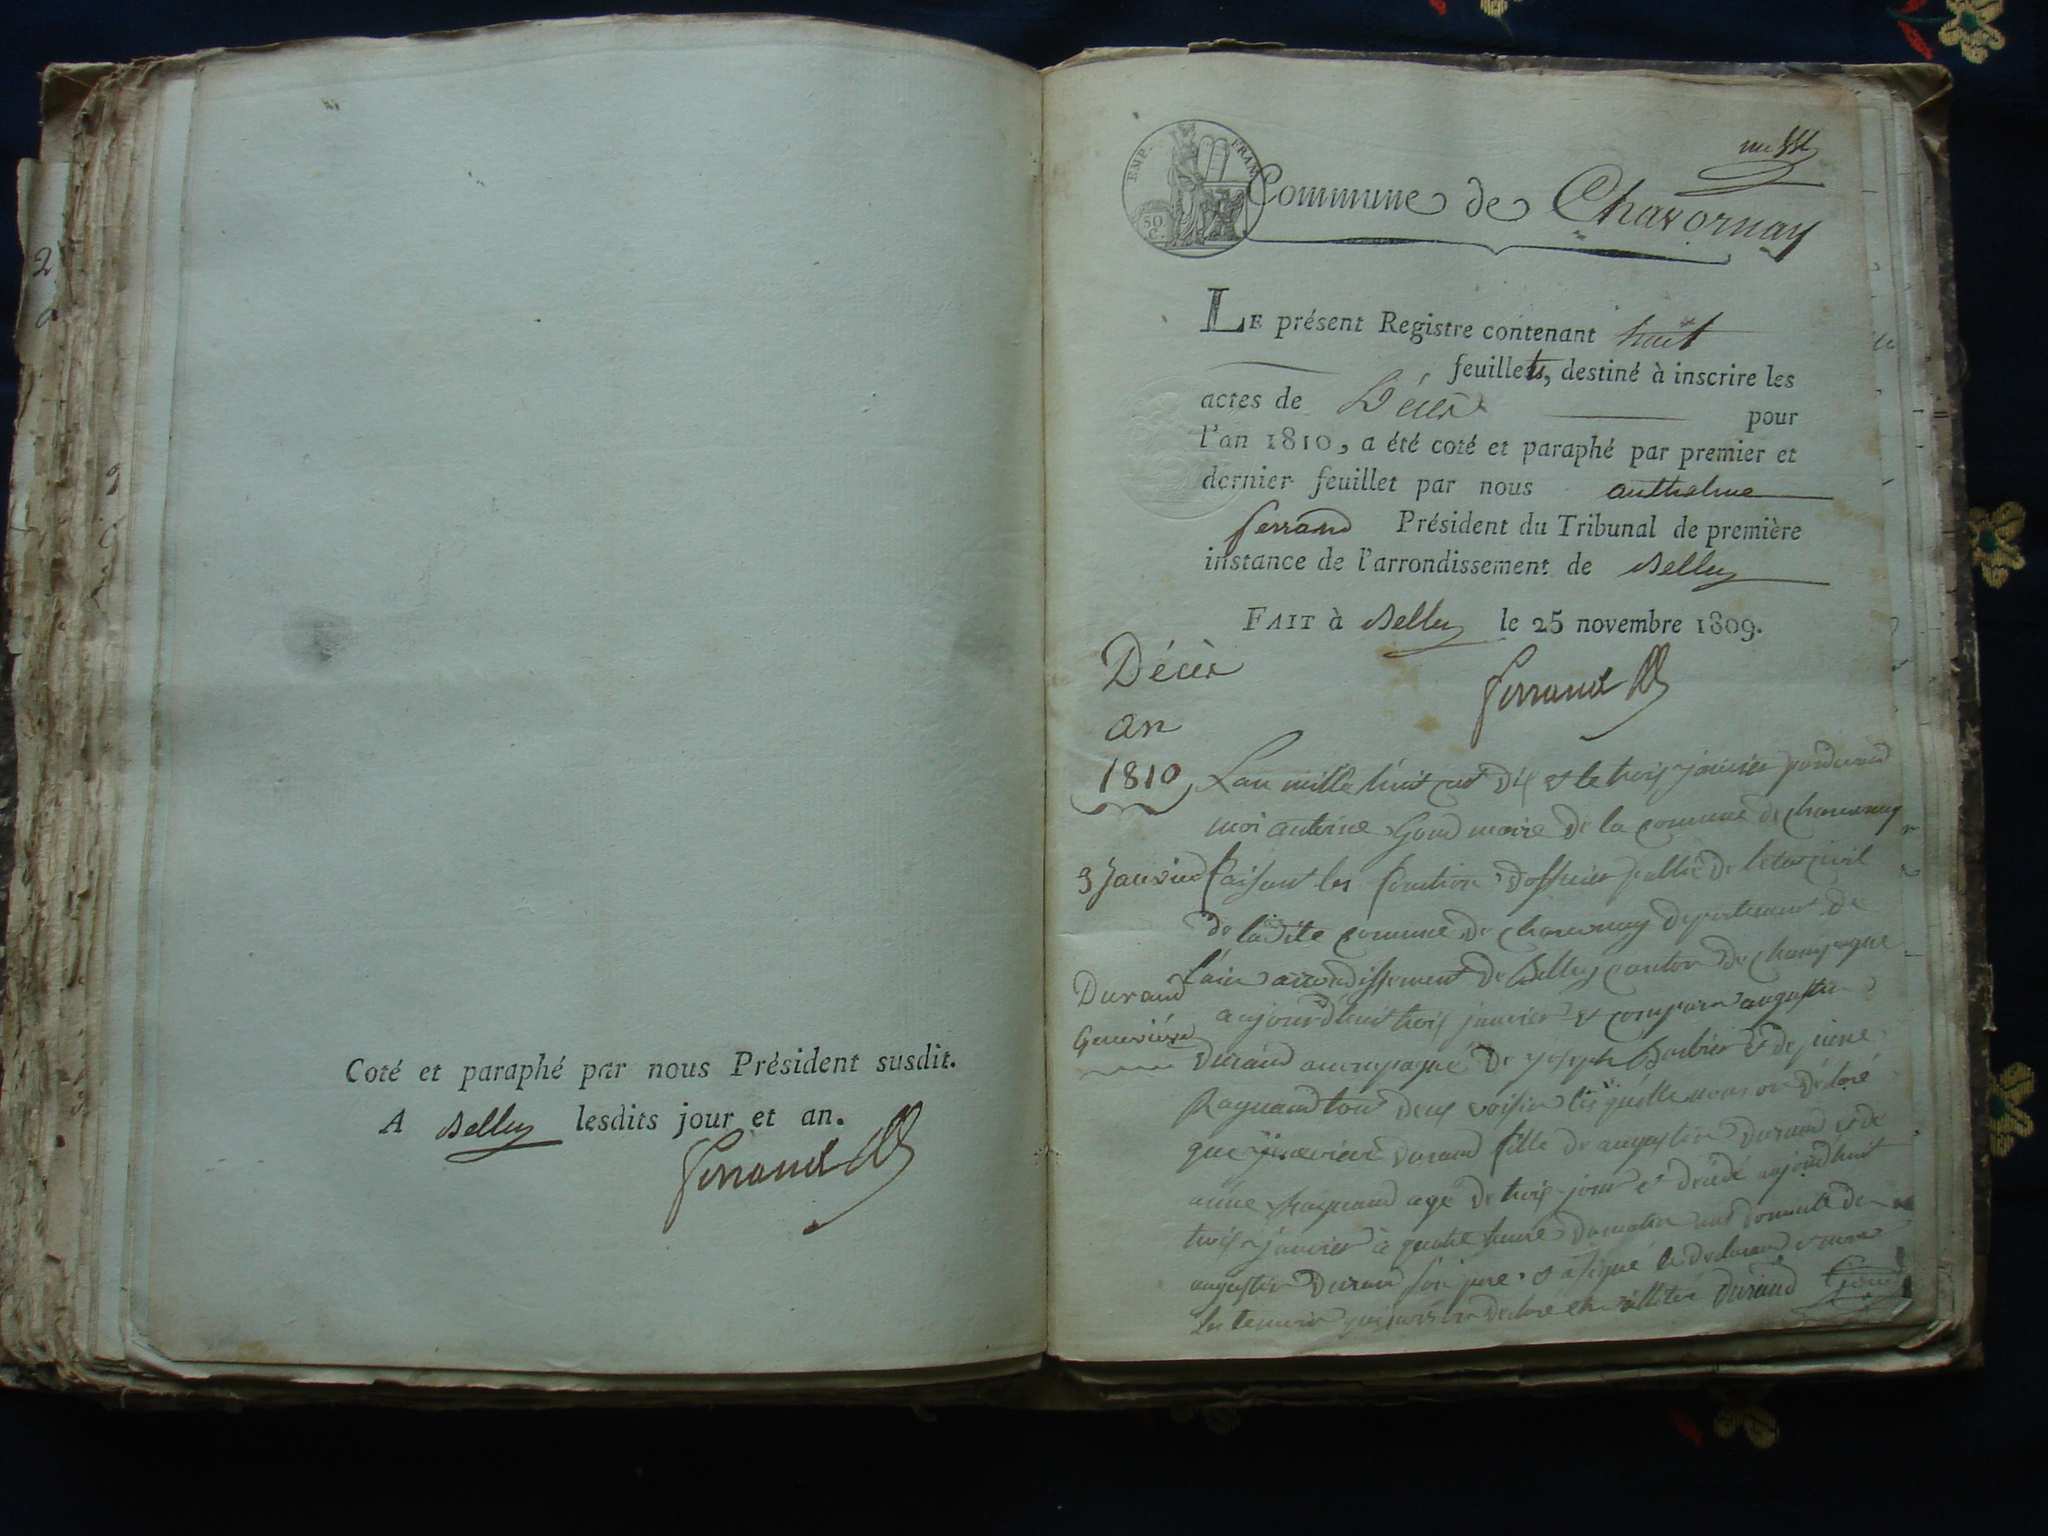 Coté et paraphé par nous Président susdit.
A Belley lesdits jour et an.
Ferrand
EMP. FRAN.
50 C.
Commune de Chavornay
LE présent Registre contenant huit
feuillets, destiné à inscrire les
actes de Décès pour
l'an 1810, a été coté et paraphé par premier et
dernier feuillet par nous anthelme
ferrand Président du Tribunal de première
instance de l'arrondissement de Belley
FAIT à Belley le 25 novembre 1809.
Ferrand
Décès
an
1810
3 Janvier
Durand
Genevieve
Lan mille huit cent dix et le trois janvier pardevant
moi antoine Goud maire de la comune de chavornay
faisant les fonction d'officier public de letat civil
de ladite comune de chavornay departement de
l'ain arrondissement de Belley canton de champagne
aujourd'huit trois janvier et comparu augustin
durand accompagné de joseph Barbier et de
Raguand tout deux voisin lesquelle nous on déclaré
que genevieve durand fille de augustin durand et de
anne Raguand agé de trois jour et décédé aujourdhuit
trois janvier à quatre heure du matin au domicile de
augustin durand son pere et a signé le declarant
durand Goud